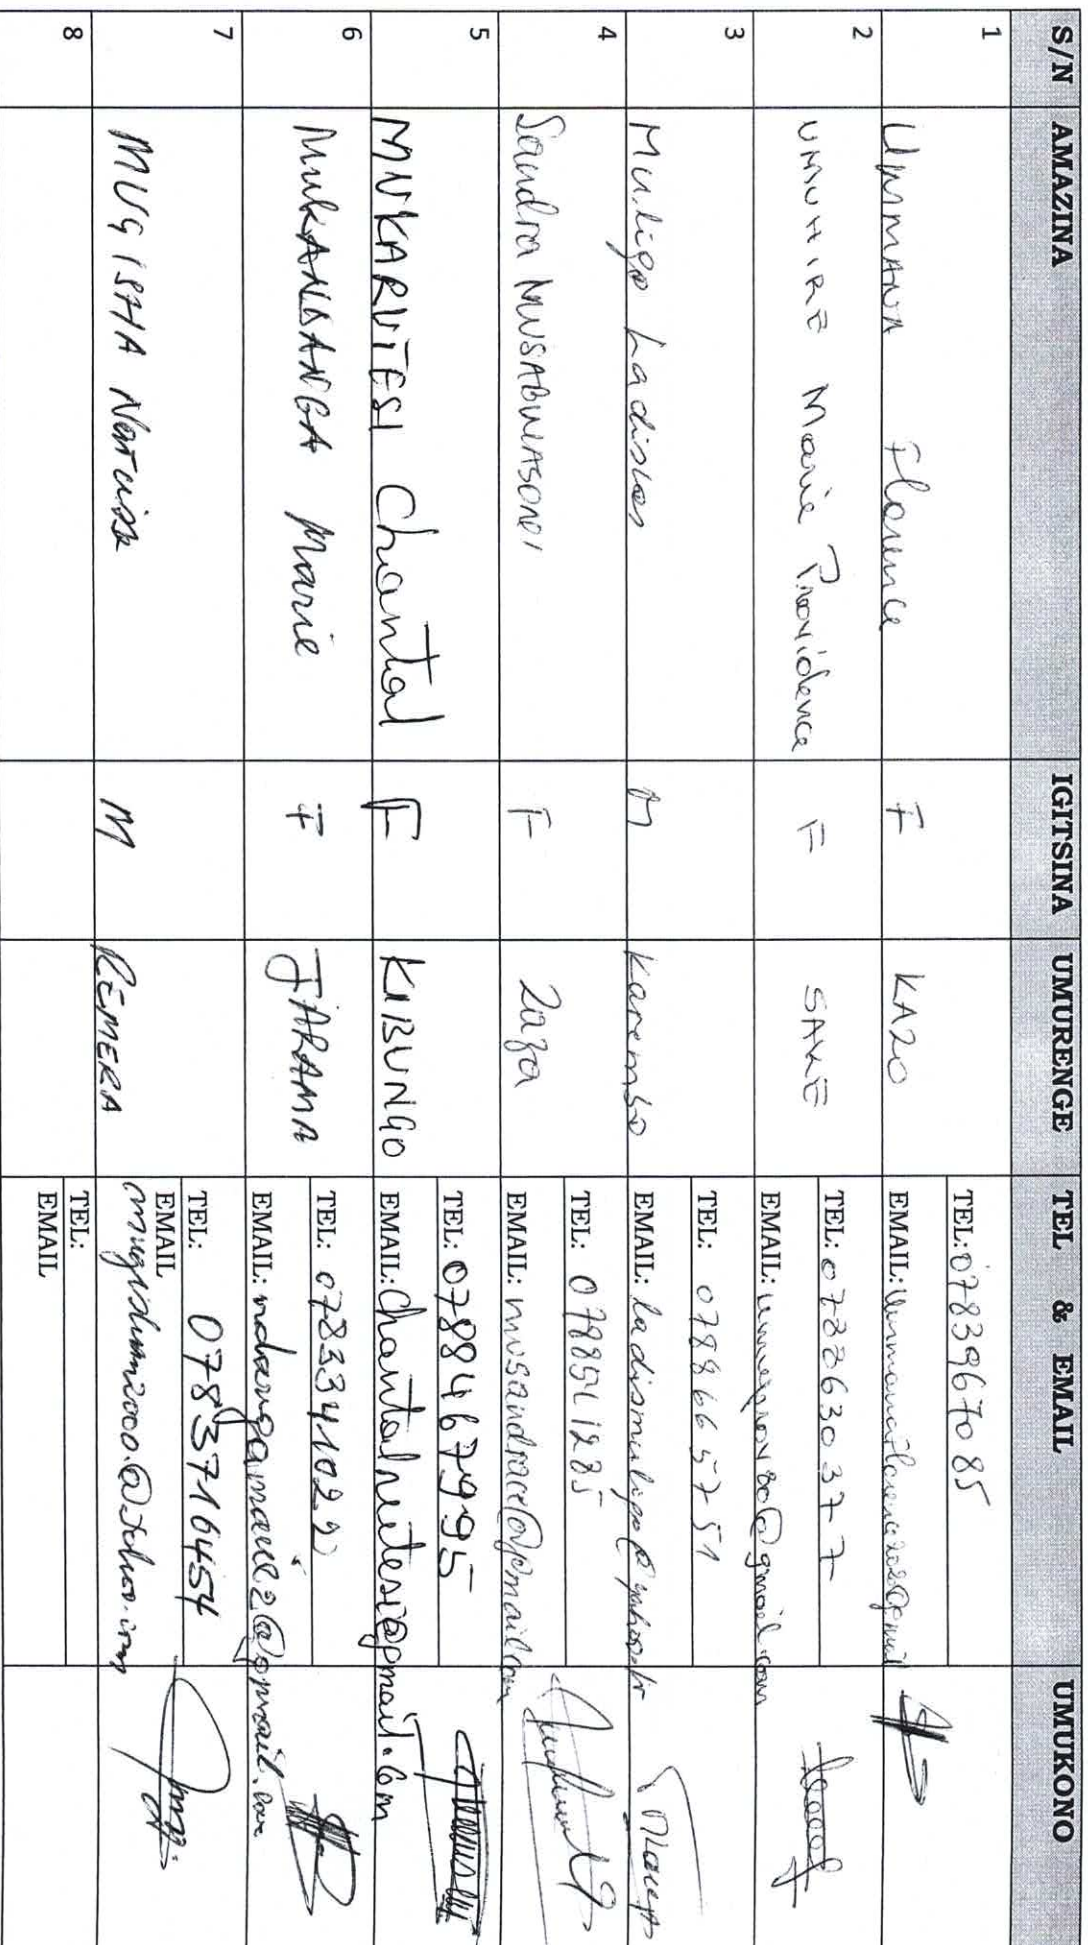 S/N AMAZINA IGITSINA UMURENGE TEL & EMAIL UMUKONO
1 Florence F KAZO TEL: 0783967085
EMAIL:
2 UMUHIRE Marie Providence F SAKE TEL: 0788630377
EMAIL: @gmail.com
3 Muligo Ladislas M Karembo TEL: 0788665751
EMAIL: ladismuligo@yahoo.fr
4 Sandra MUSABWASONI F Zaza TEL:
EMAIL: musandrace@gmail.com
5 MUKARUTESI Chantal F KIBUNGO TEL: 0788467995
EMAIL: chantalrutesi@gmail.com
6 MukANDANGA Marie F JARAMA TEL: 0783341022
EMAIL: ndangamarie2@gmail.com
7 MUGISHA Narcisse M REMERA TEL: 0783716454
EMAIL
8 TEL:
EMAIL